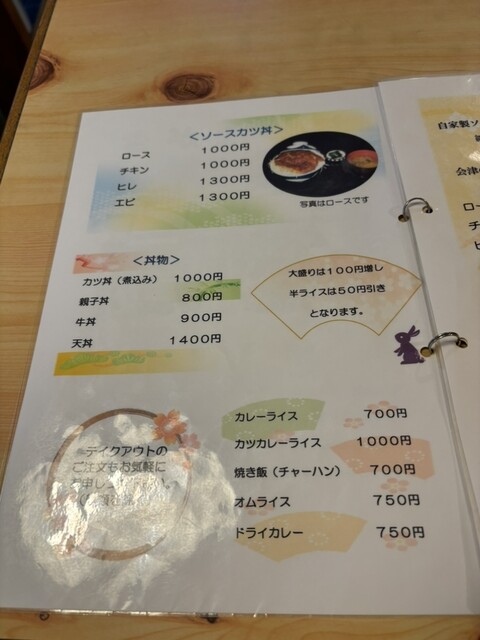 <ソースカツ丼>
ロース 1000円
チキン 1000円
ヒレ 1300円
エビ 1300円
写真はロースです
<丼物>
カツ丼（煮込み） 1000円
親子丼 800円
牛丼 900円
天丼 1400円
大盛りは100円増し
半ライスは50円引き
となります。
カレーライス 700円
カツカレーライス 1000円
焼き飯（チャーハン） 700円
オムライス 750円
ドライカレー 750円
テイクアウトの
ご注文もお気軽に
お申し
自家製ソ
会津
ロー
チ
ヒ